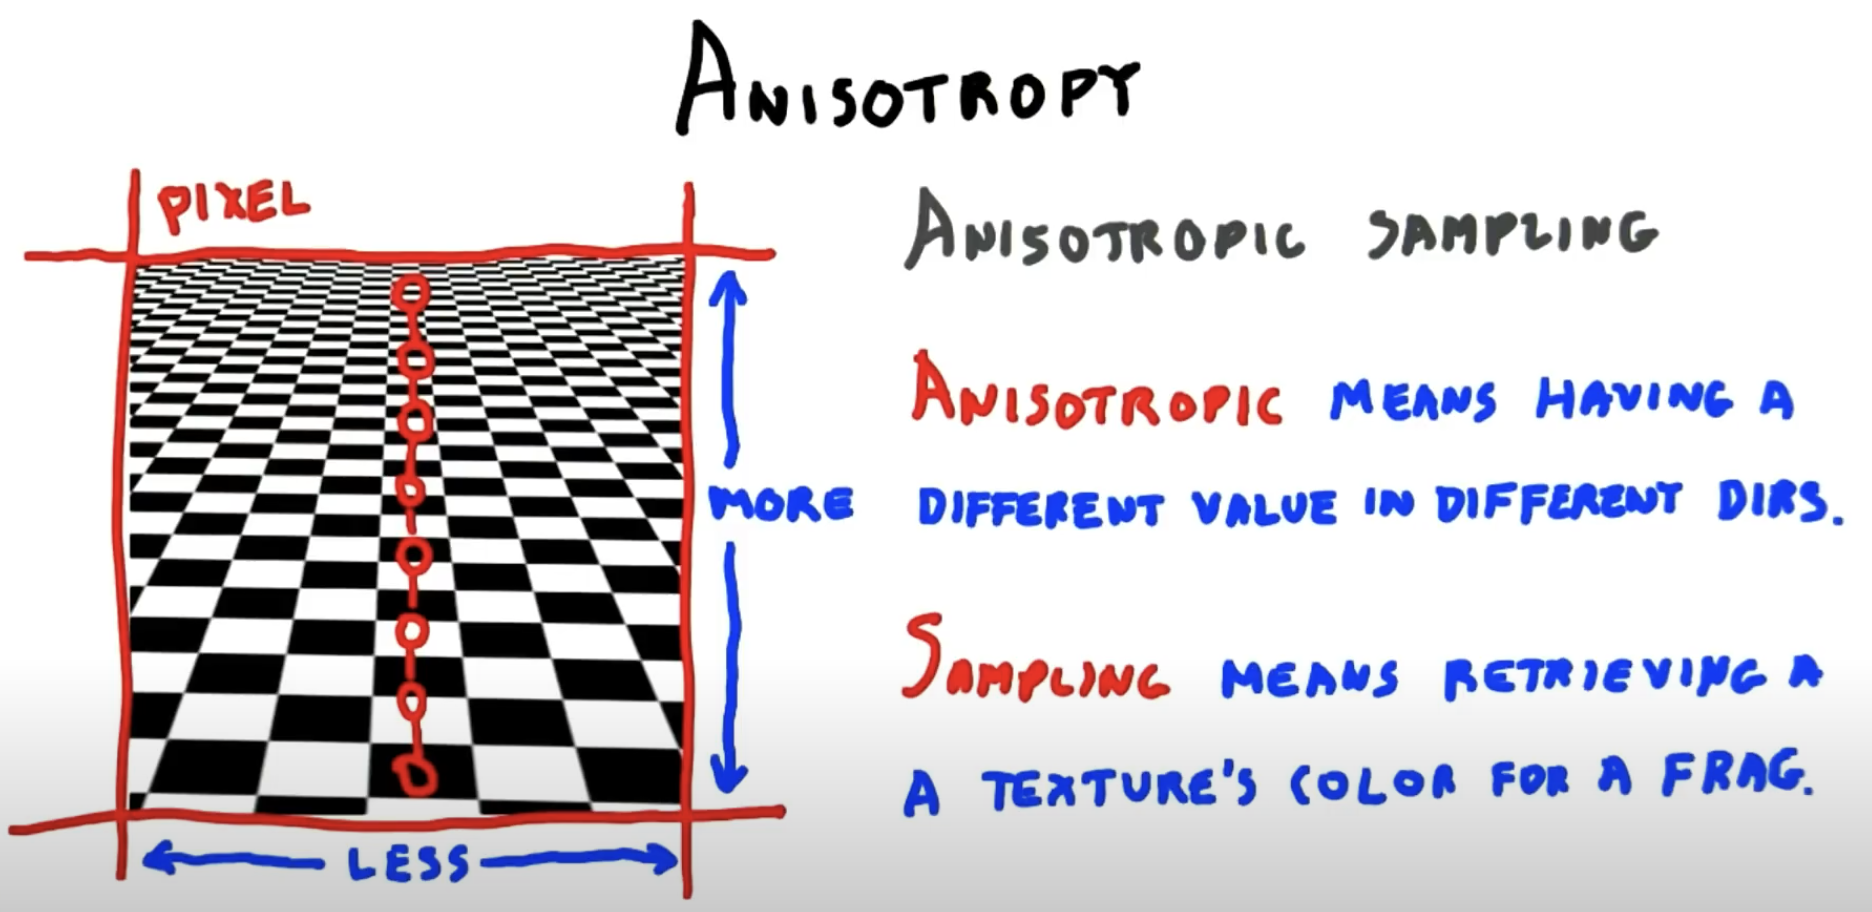 ANISOTROPY
PIXEL
ANISOTROPIC SAMPLING
ANISOTROPIC MEANS HAVING A
MORE
DIFFERENT VALUE IN DIFFERENT DIRS.
SAMPLING MEANS RETRIEVING A
A TEXTURE'S COLOR FOR A FRAG.
LESS